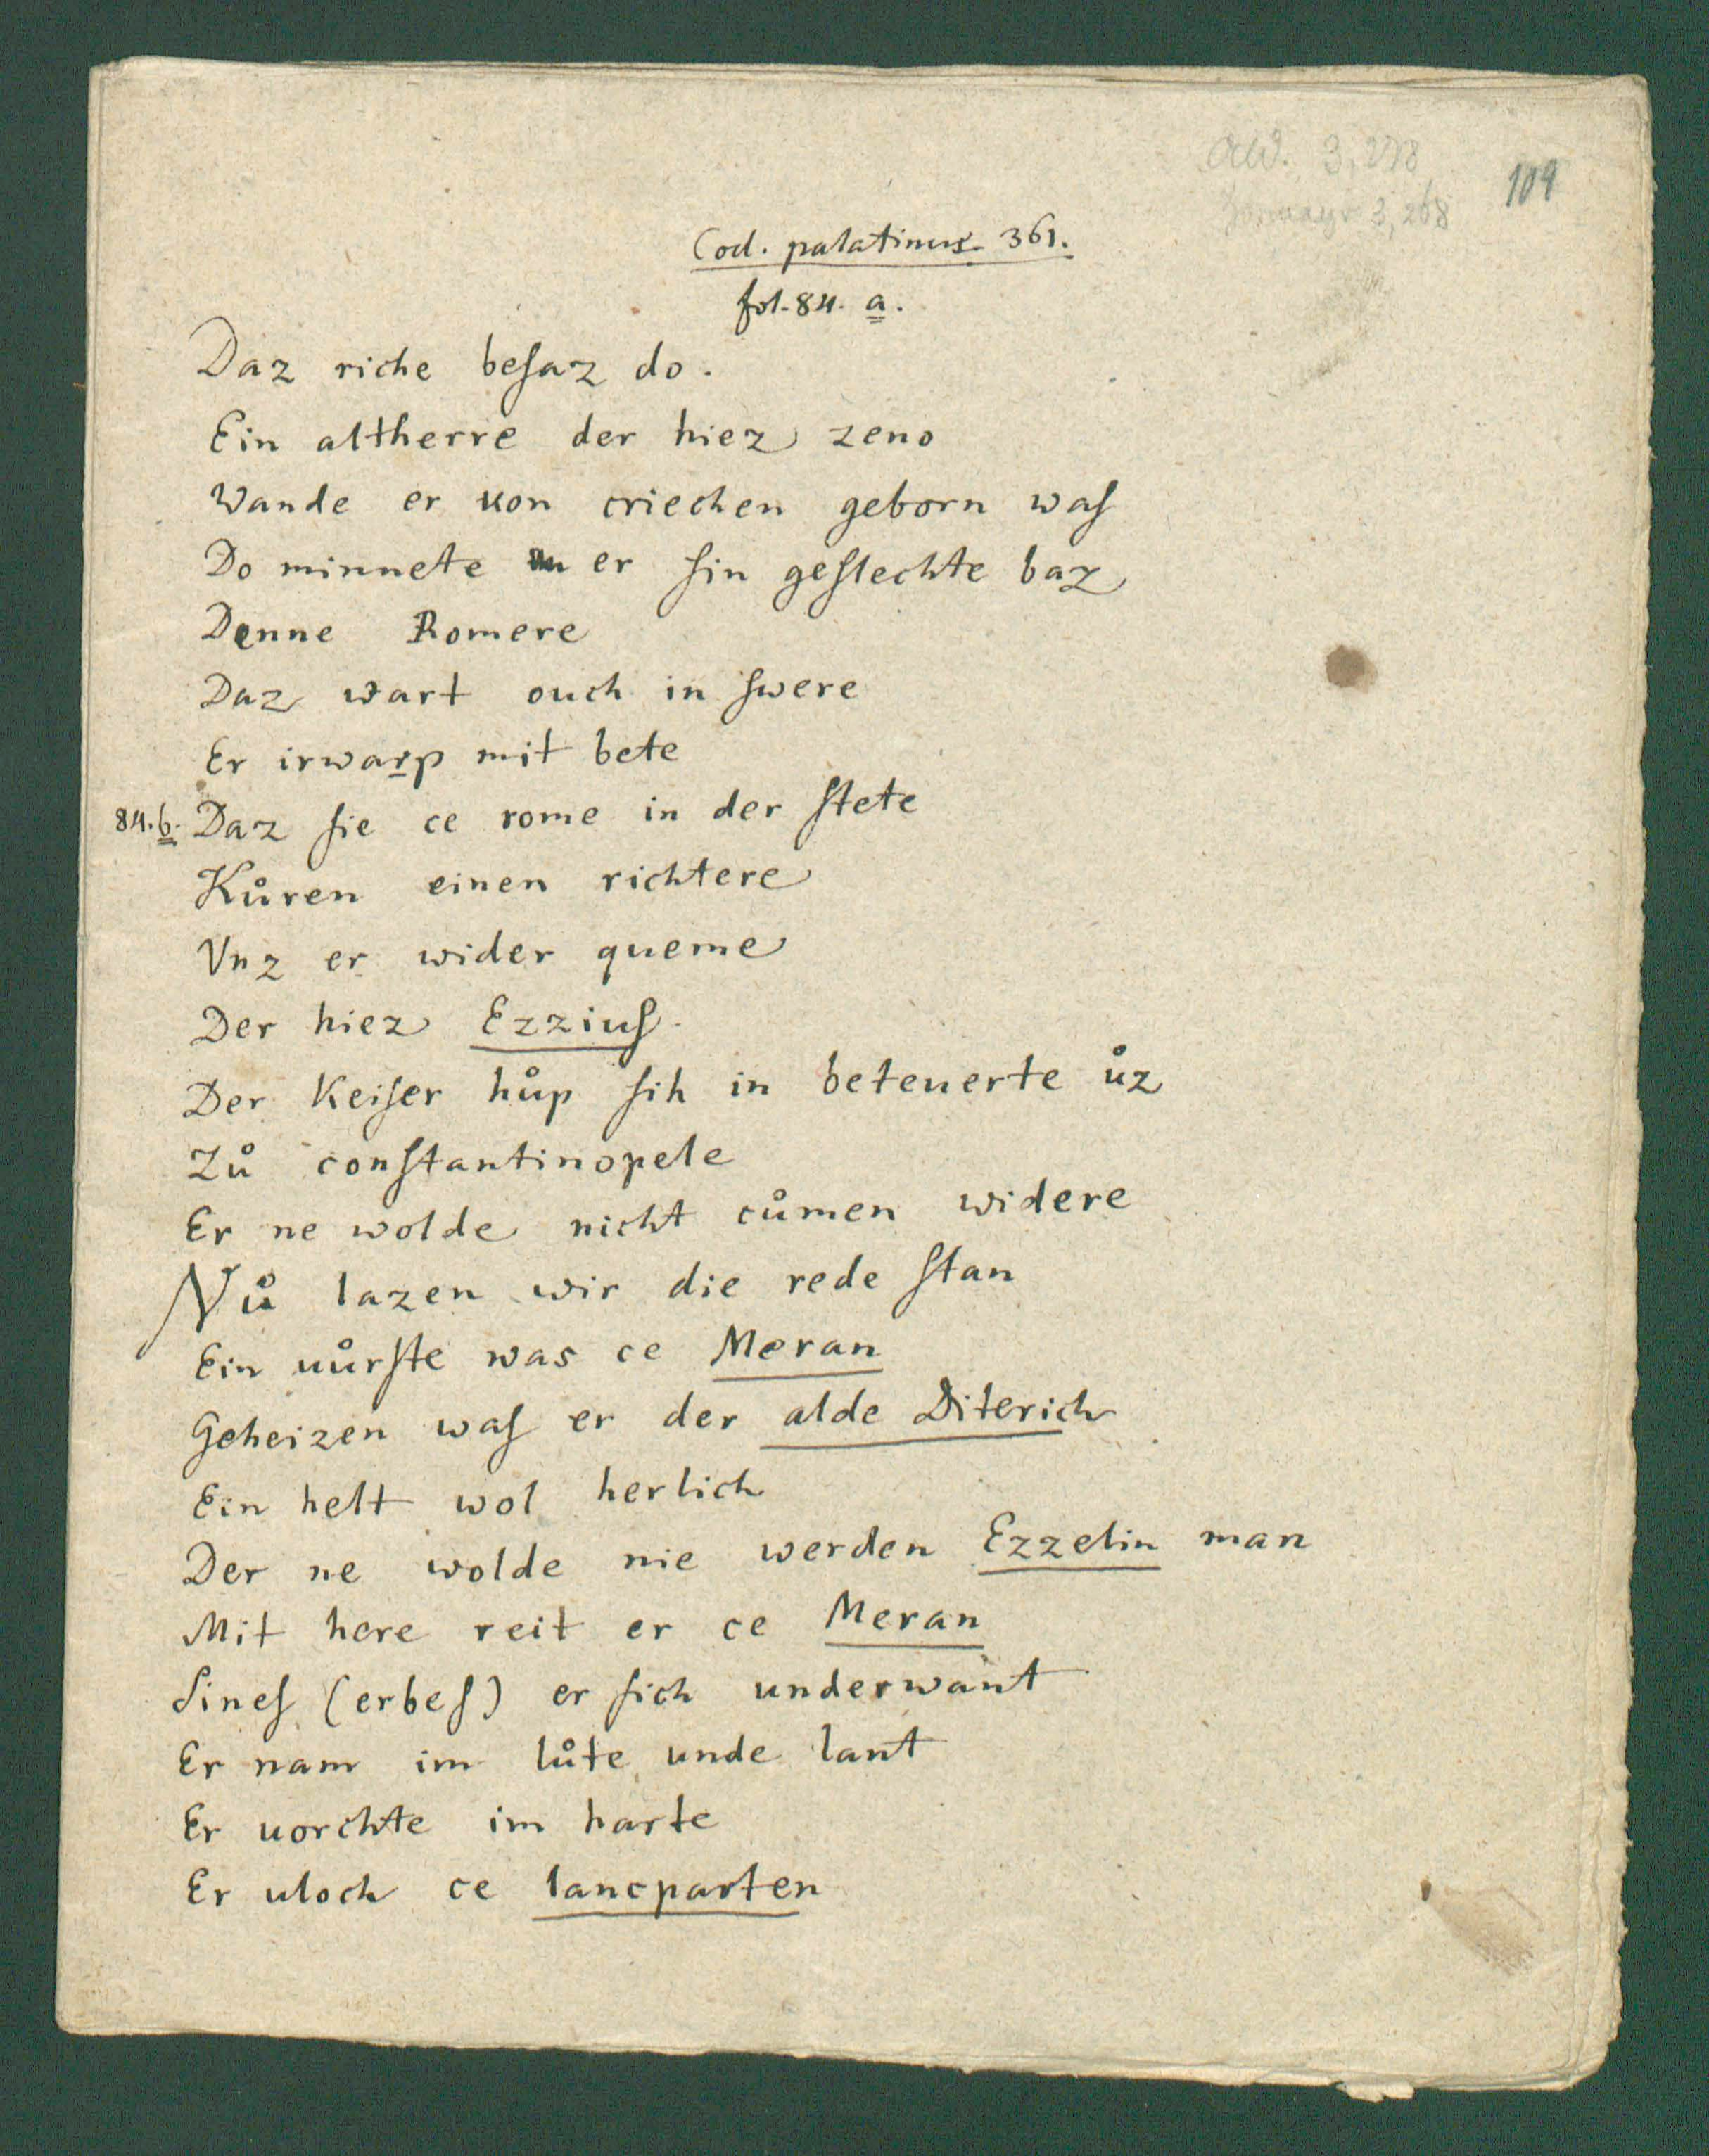 109
Cod. palatinus. 361.
fol. 84. a.
Daz riche beſaz do.
Ein altherre der hiez zeno
Wande er uon criechen geborn waſ
Do minnete er ſin geſlechte baz
Denne Romere
Daz wart ouch in ſwere
Er irwarp mit bete
84. b. Daz ſie ce rome in der ſtete
Kůren einen richtere
Vnz er wider queme
Der hiez Ezziuſ.
Der Keiſer hůp ſih in beteuerte ůz
Zů conſtantinopele
Er ne wolde nicht cůmen widere
Nů lazen wir die rede ſtan
Ein uůrſte was ce Meran
Geheizen waſ er der alde Diterich
Ein helt wol herlich
Der ne wolde nie werden Ezzelin man
Mit here reit er ce Meran
Sineſ (erbeſ) er ſich underwant
Er nam im lůte unde lant
Er uorchte im harte
Er uloch ce lancparten